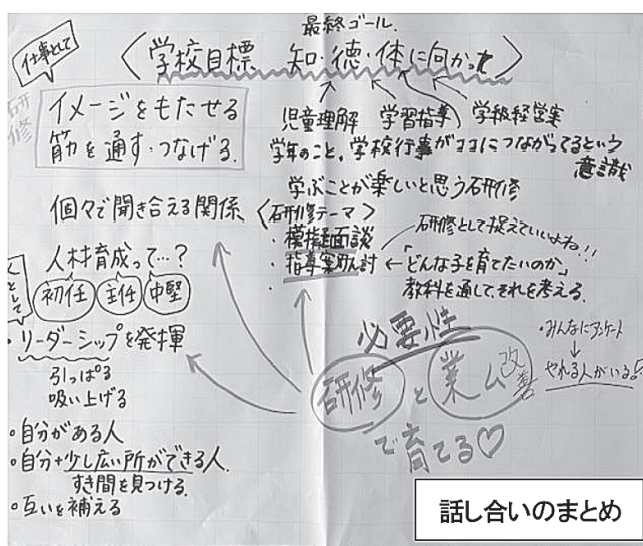 最終ゴール.
仕事として
〈学校目標 知・徳・体に向かって〉
研修
イメージをもたせる
筋を通す・つなげる.
児童理解 学習指導 学級経営案
学年のこと、学校行事がココにつながってるという
意識
学ぶことが楽しいと思う研修
個々で聞き合える関係
〈研修テーマ〉
・模擬面談
・指導案検討 ← 「どんな子を育てたいのか」
教科を通して、それを考える.
研修として捉えていいよね!!
人材育成って…?
初任 主任 中堅
として
・リーダーシップを発揮
引っぱる
吸い上げる
・自分がある人
・自分+少し広い所ができる人.
すき間を見つける.
・互いを補える
必要性
研修と業ム改善
で育てる♡
・みんなにアンケート
↓
やれる人がいる
話し合いのまとめ